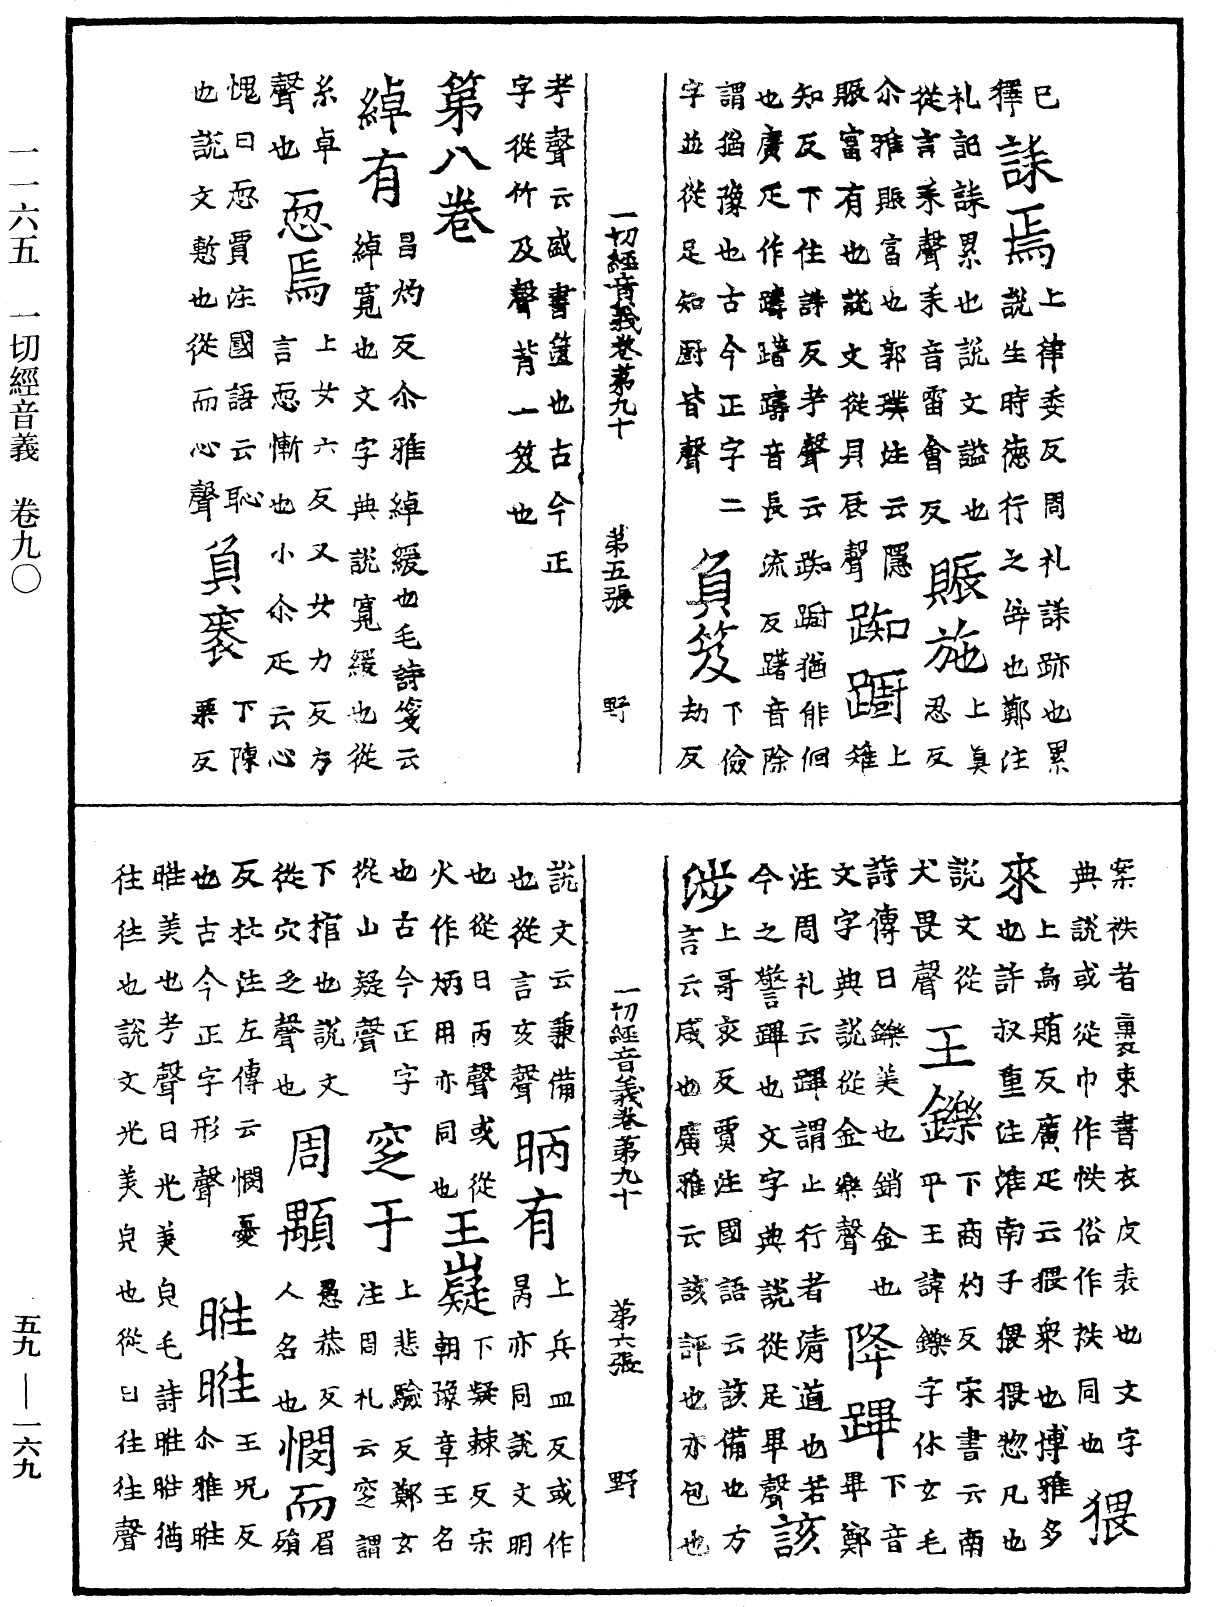 一一六五 一切經音義 卷九〇
已
釋誄焉上律委反周礼誄跡也累
札記誄累也說文謚也
說生時德行之辝也鄭注
從言耒聲耒音雷會反賑施上真忍反
尒雅賑富也郭璞注云隱
賑富有也說文從貝辰聲踟躕上雉
知反下住誅反考聲云踟躕猶俳佪
也廣疋作躊躇躊音長流反躇音除
謂猶豫也古今正字二
字並從足知厨皆聲負笈下儉劫反
一切經音義卷第九十 第五張 野
考聲云盛書篋也古今正
字從竹及聲背一笈也
第八卷
綽有昌灼反尒雅綽緩也毛詩箋云
綽寬也文字典說寬緩也從
糸卓聲也恧焉上女六反又女力反方
言恧慚也小尒疋云心
愧曰恧賈注國語云恥
也說文慙也從而心聲負袠下陳栗反
案袟者裹束書衣皮表也文字
典說或從巾作帙俗作袟同也猥
來上烏賄反廣疋云猥衆也博雅多
也許叔重注淮南子猥猥惣凡也
說文從犬畏聲王鑠下商灼反宋書云南
平王諱鑠字休玄毛
詩傳曰鑠美也銷金也降蹕下音畢鄭
文字典說從金樂聲
注周礼云蹕謂止行者清道也若
今之警蹕也文字典說從足畢聲該
涉上哥亥反賈注國語云該備也方
言云咸也廣雅云該評也亦包也
一切經音義卷第九十 第六張 野
說文云兼備也從言亥聲昞有上兵皿反或作
昺亦同說文明
也從日丙聲或從火作炳用亦同也王嶷下凝棘反宋
朝豫章王名
也古今正字從山疑聲窆于上悲驗反鄭玄
注周礼云窆謂
下棺也說文從穴乏聲也周顒愚恭反
人名也憫而眉殞
反杜注左傳云憫憂也古今正字形聲暀暀王況反
尒雅暀
暀美也考聲日光美皃毛詩暀暀猶
往往也說文光美皃也從日往往聲
五九——一六九